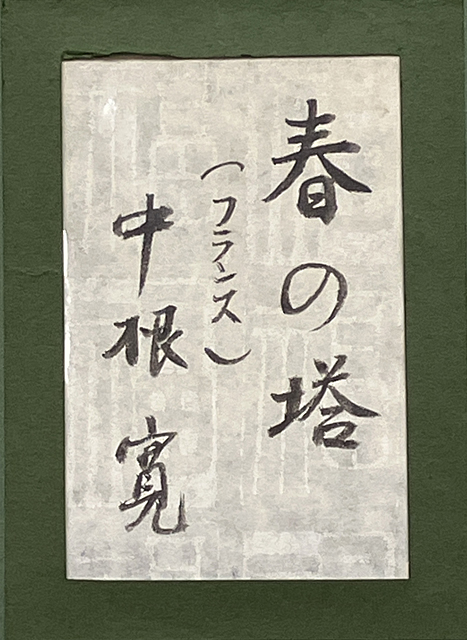 春の塔
（フランス）
中根寛